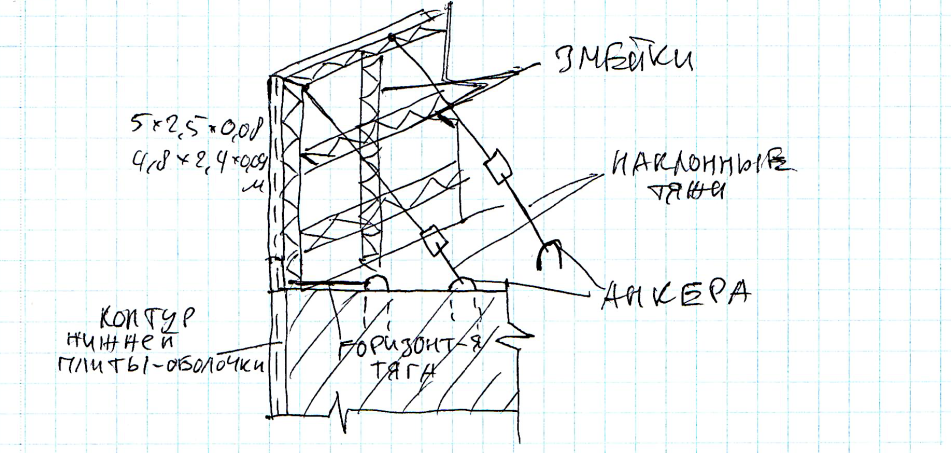 ЗМЕЙКИ
5×2,5×0,08
4,8×2,4×0,09
м
НАКЛОННЫЕ
ТЯЖИ
АНКЕРА
КОНТУР
НИЖНЕЙ
ПЛИТЫ-ОБОЛОЧКИ
ГОРИЗОНТ-Я
ТЯГА